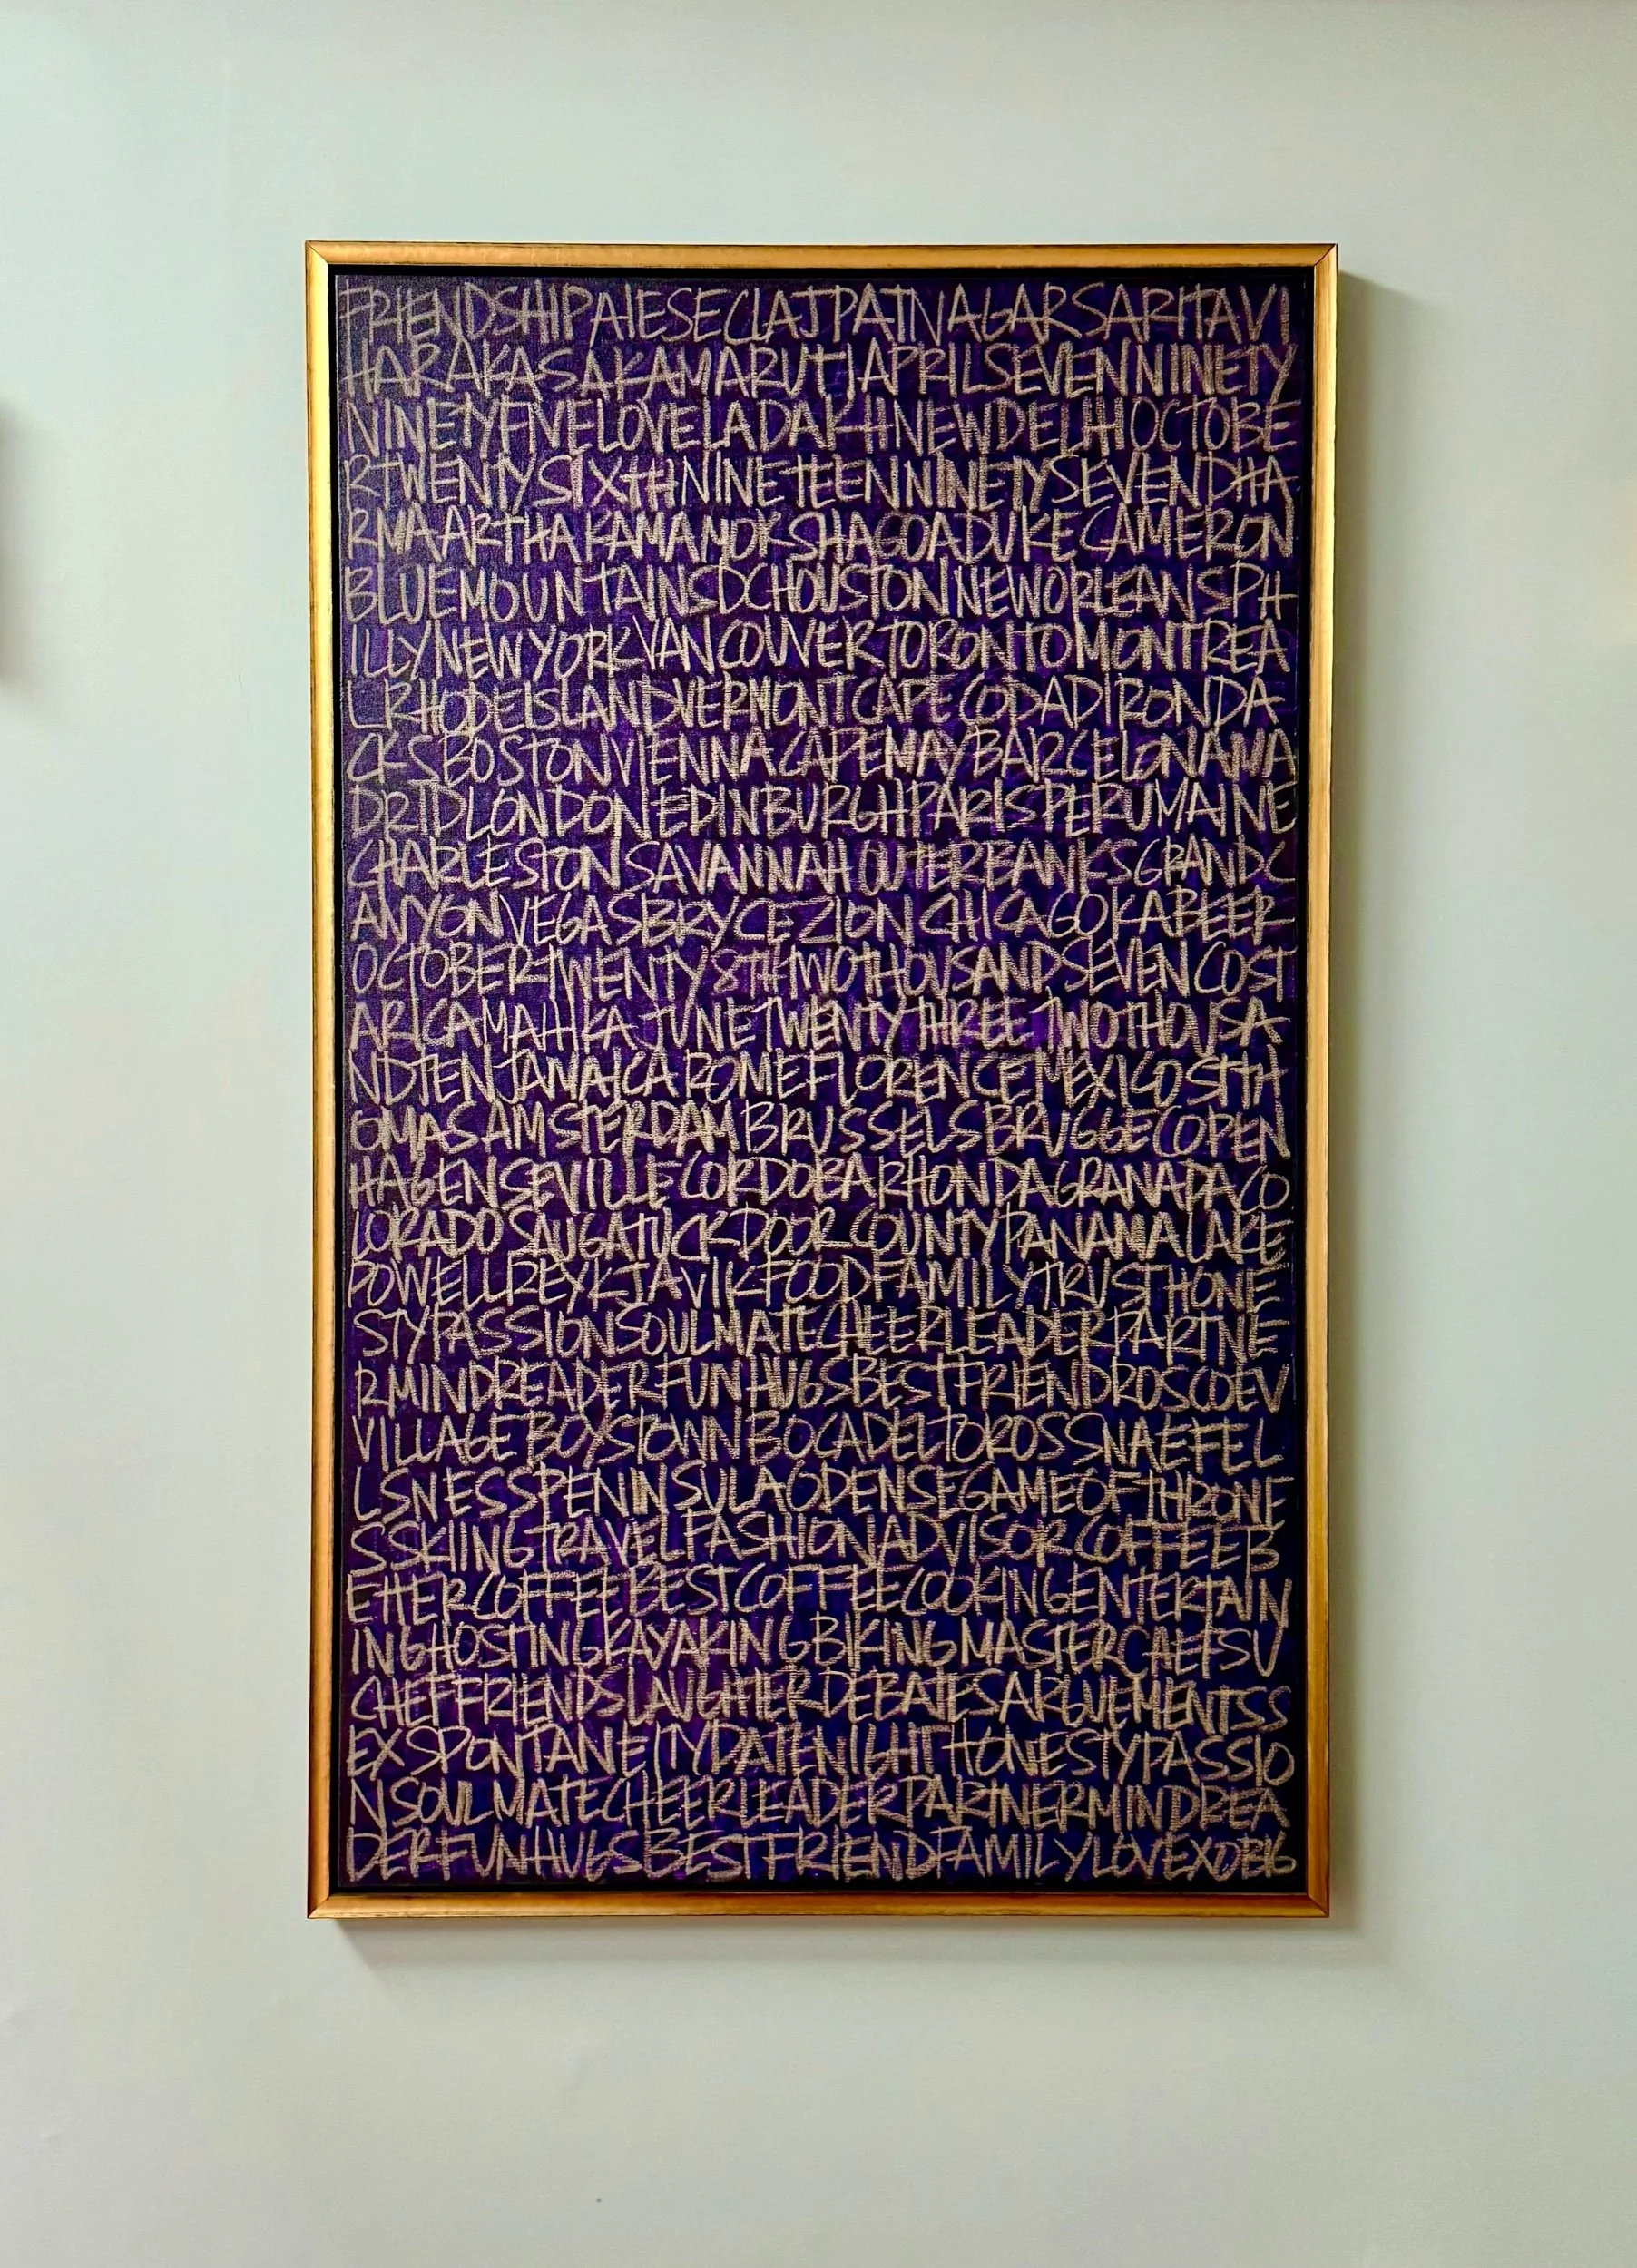 FRIENDSHIPAIESECLAJPATNAGARSARITAVI
HARAKASAKAMARUTIJAPRILSEVENNINETY
NINETYFIVELOVELADAKHNEWDELHIOCTOBE
RTWENTYSIXTHNINETEENNINETYSEVENDHA
RMAARTHAKAMAMOKSHAGOADUKECAMERON
BLUEMOUNTAINSDCHOUSTONNEWORLEANSPH
ILLYNEWYORKVANCOUVERTORONTOMONTREA
LRHODEISLANDVERMONTCAPECODADIRONDA
CKSBOSTONVIENNACAPEMAYBARCELONAMA
DRIDLONDONEDINBURGHPARISPERUMAINE
CHARLESTONSAVANNAHOUTERBANKSGRANDC
ANYONVEGASBRYCEZIONCHICAGOKABEER
OCTOBERTWENTY8THTWOTHOUSANDSEVENCOST
ARICAMAHIKAJUNETWENTYTHREETWOTHOUSA
NDTENJAMAICAROMEFLORENCEMEXICOSTTH
OMASAMSTERDAMBRUSSELSBRUGGECOPEN
HAGENSEVILLECORDOBARHONDAGRANADACO
LORADOSAUGATUCKDOORCOUNTYPANAMALAKE
POWELLREYKJAVIKFOODFAMILYTRUSTHONE
STYPASSIONSOULMATECHEERLEADERPARTNE
RMINDREADERFUNHUGSBESTFRIENDROSCOEV
VILLAGEBOYSTOWNBOCADELTOROSSNAEFEL
LSNESSPENINSULAODENSEGAMEOFTHRONE
SSKIINGTRAVELFASHIONADVISORCOFFEEB
ETTERCOFFEEBESTCOFFEECOOKINGENTERTAIN
INGHOSTINGKAYAKINGBIKINGMASTERCHEFSU
CHEFFRIENDSLAUGHTERDEBATESARGUEMENTSS
EXSPONTANEITYDATENIGHTHONESTYPASSIO
NSOULMATECHEERLEADERPARTNERMINDREA
DERFUNHUGSBESTFRIENDFAMILYLOVEXOBIG